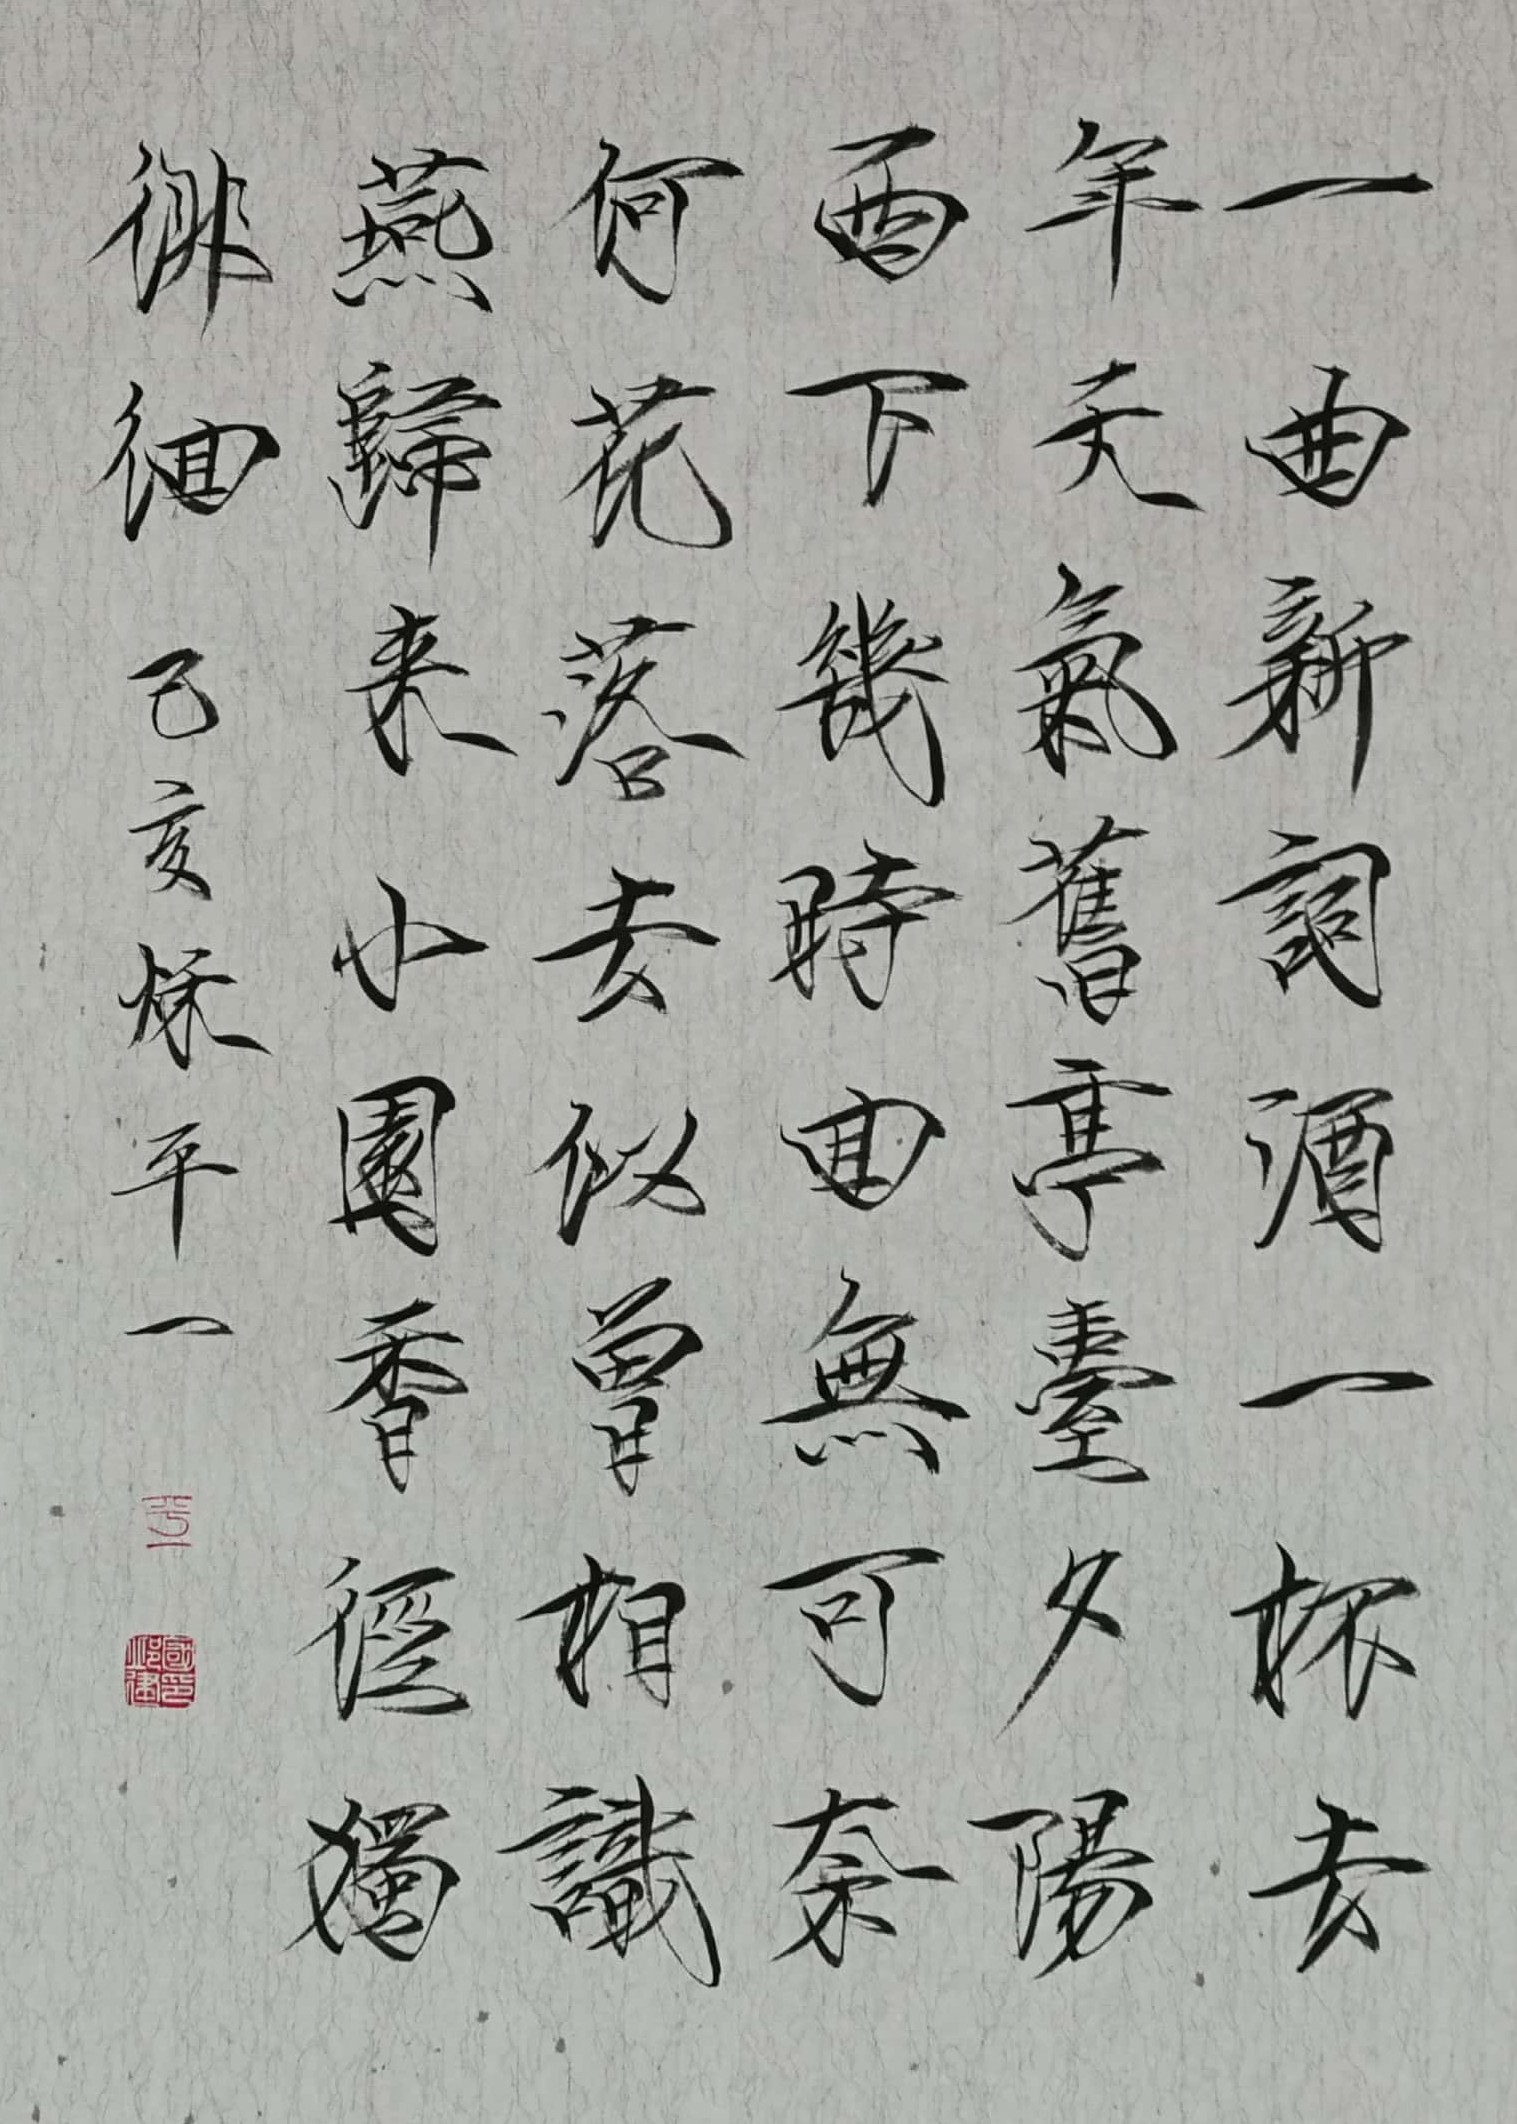 一曲新詞酒一杯去
年天氣舊亭臺夕陽
西下幾時回無可奈
何花落去似曾相識
燕歸来小園香徑獨
徘徊
己亥秌平一
平一